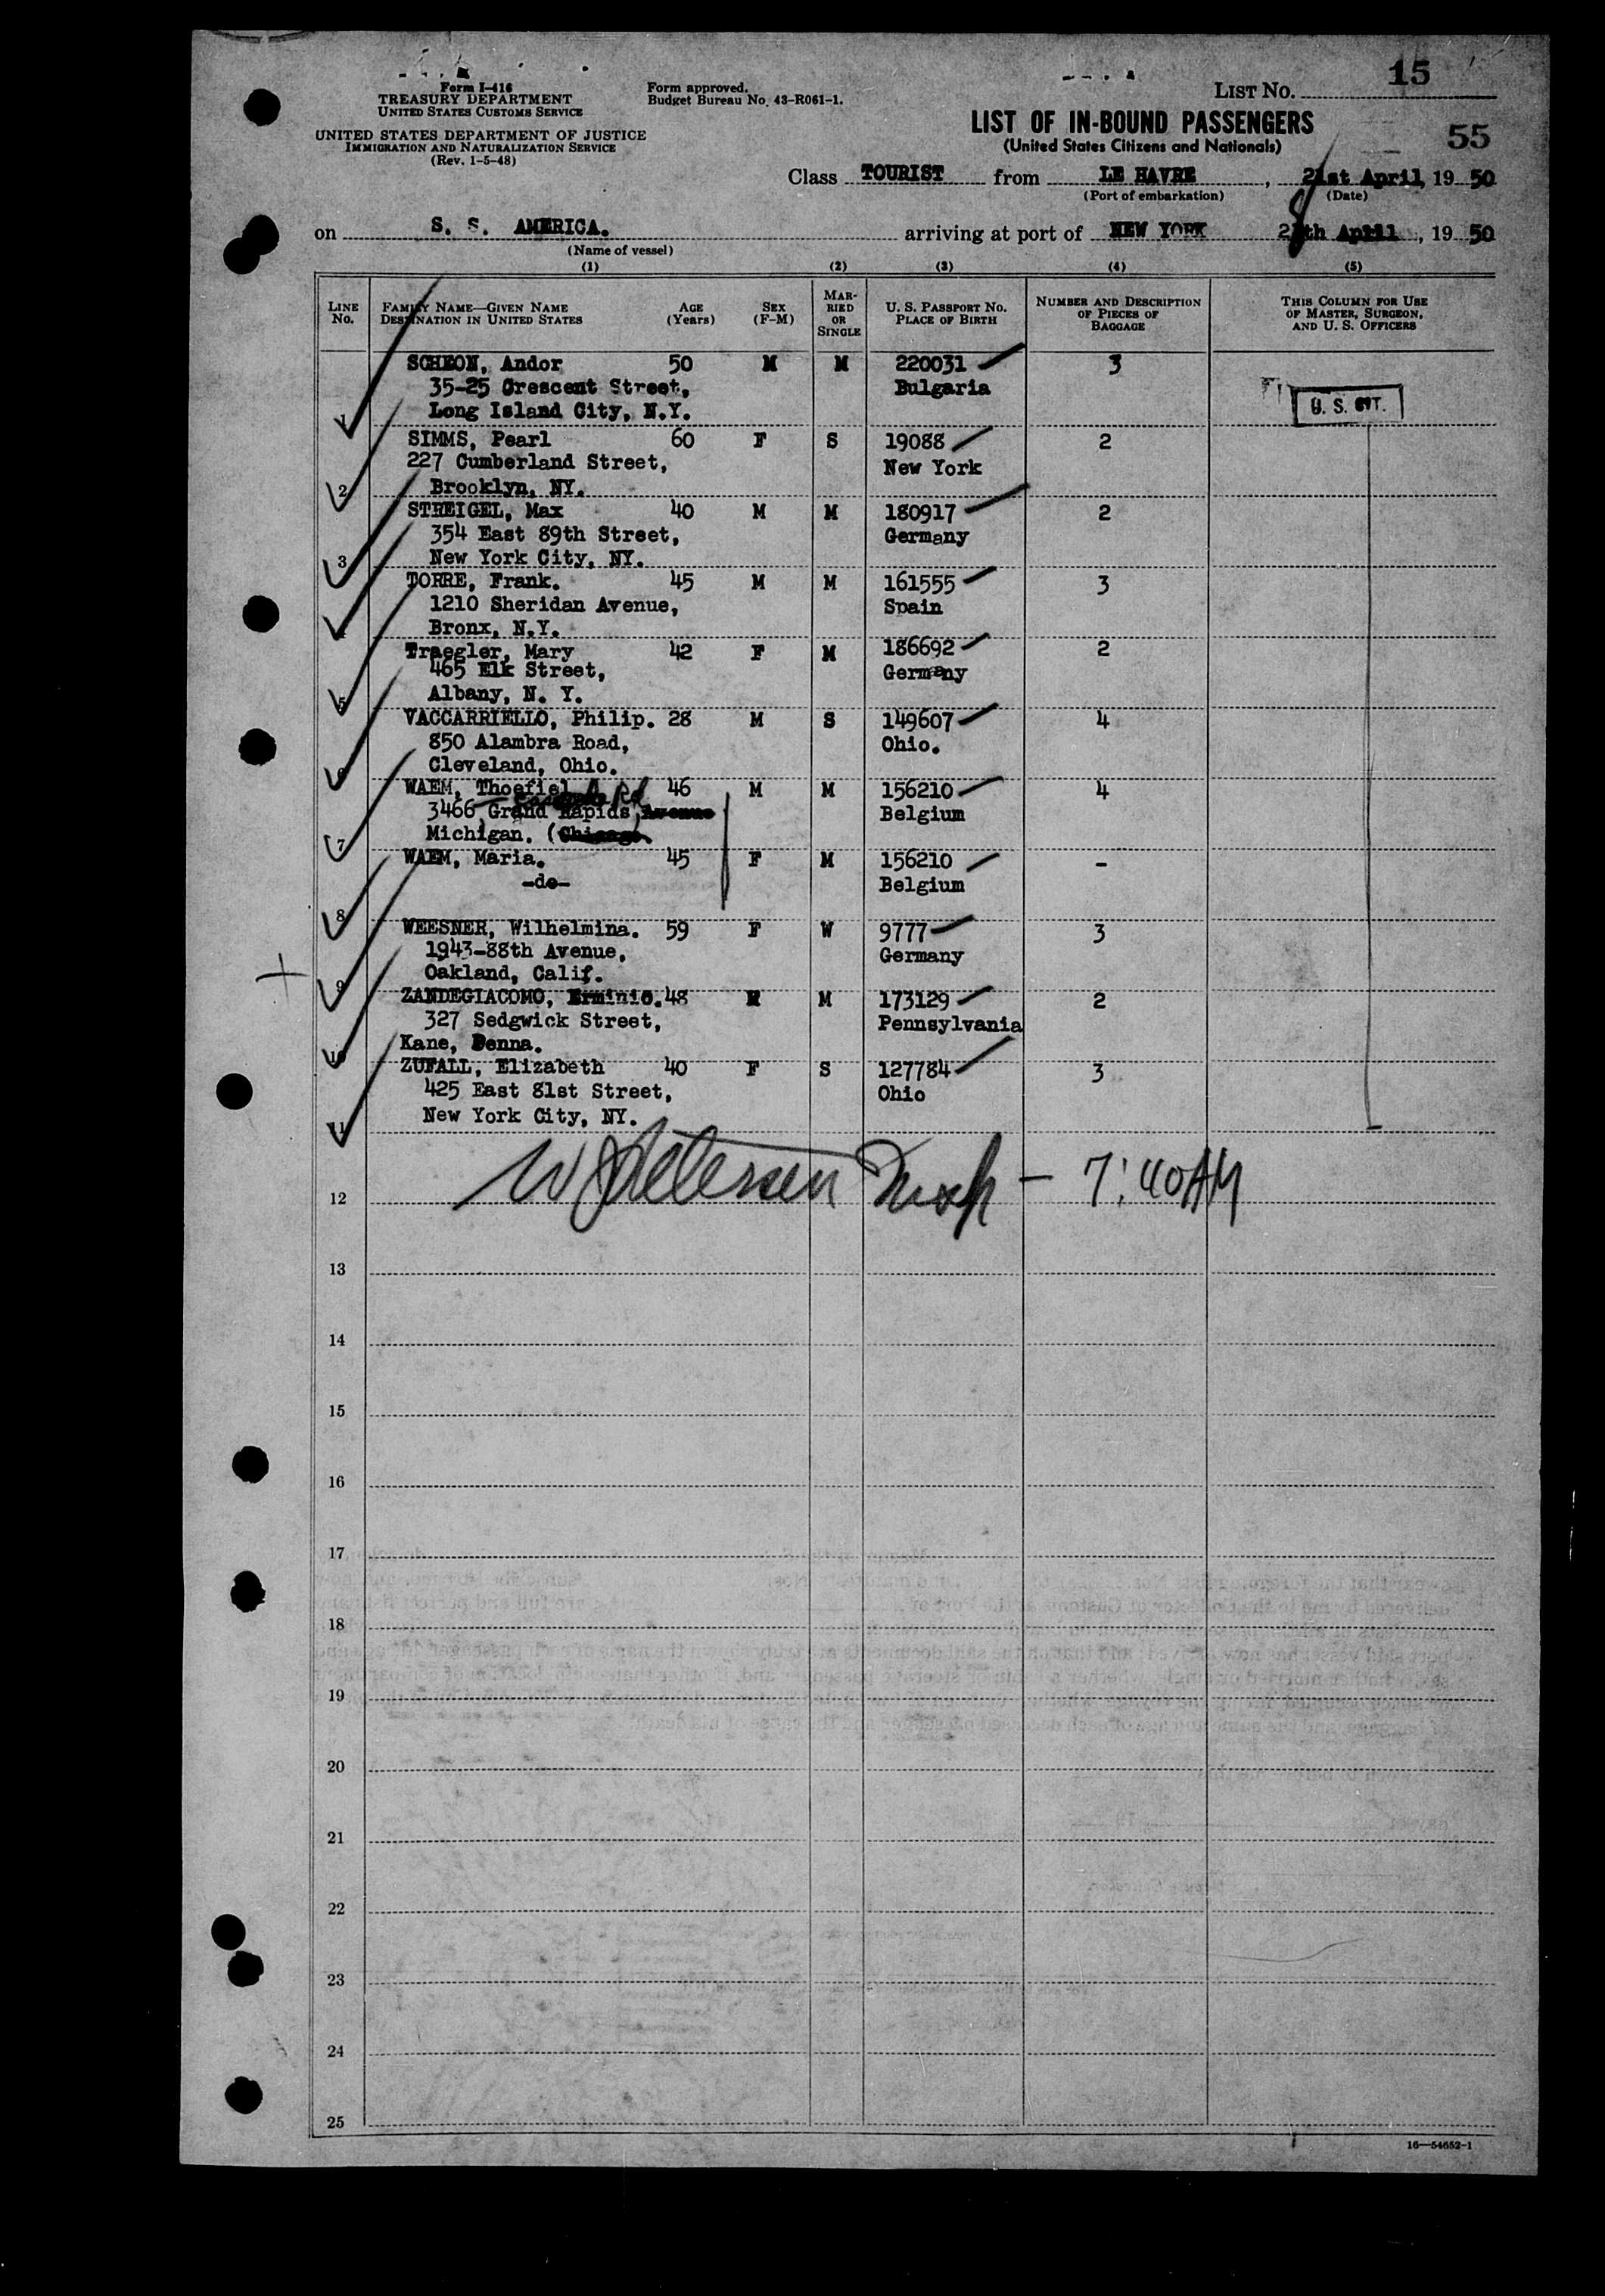 15
Form I-416
TREASURY DEPARTMENT
UNITED STATES CUSTOMS SERVICE
UNITED STATES DEPARTMENT OF JUSTICE
IMMIGRATION AND NATURALIZATION SERVICE
(Rev. 1-5-48)
Form approved.
Budget Bureau No. 43-R061-1.
LIST NO.
LIST OF IN-BOUND PASSENGERS
(United States Citizens and Nationals)
55
Class TOURIST from LE HAVRE, 21st April, 19 50
(Port of embarkation) (Date)
on S. S. AMERICA. arriving at port of NEW YORK 28th April, 19 50
(Name of vessel)
(1) (2) (3) (4) (5)
LINE NO. FAMILY NAME—GIVEN NAME DESTINATION IN UNITED STATES AGE (Years) SEX (F-M) MARRIED OR SINGLE U. S. PASSPORT NO. PLACE OF BIRTH NUMBER AND DESCRIPTION OF PIECES OF BAGGAGE THIS COLUMN FOR USE OF MASTER, SURGEON, AND U. S. OFFICERS
SCHEON, Andor 50 M M 220031 3
35-25 Crescent Street, Bulgaria
1 Long Island City, N.Y. U. S. CIT.
SIMMS, Pearl 60 F S 19088 2
227 Cumberland Street, New York
2 Brooklyn, NY.
STREIGEL, Max 40 M M 180917 2
354 East 89th Street, Germany
3 New York City, NY.
TORRE, Frank. 45 M M 161555 3
1210 Sheridan Avenue, Spain
4 Bronx, N.Y.
Traegler, Mary 42 F M 186692 2
465 Elk Street, Germany
5 Albany, N. Y.
VACCARRIELLO, Philip. 28 M S 149607 4
850 Alambra Road, Ohio.
6 Cleveland, Ohio.
WAEM, Thoefiel 46 M M 156210 4
Rd
3466 Grand Rapids Avenue Belgium
7 Michigan. (Chicago
WAEM, Maria. 45 F M 156210 -
-do- Belgium
8
WEESNER, Wilhelmina. 59 F W 9777 3
1943-88th Avenue, Germany
9 Oakland, Calif.
ZANDEGIACOMO, Erminio. 48 M M 173129 2
327 Sedgwick Street, Pennsylvania
10 Kane, Penna.
ZUFALL, Elizabeth 40 F S 127784 3
425 East 81st Street, Ohio
11 New York City, NY.
W Petersen — 7:40AM
12
13
14
15
16
17
18
19
20
21
22
23
24
25
16—54652-1